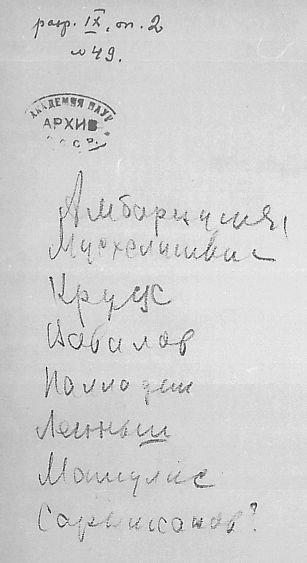 разр. IX, оп. 2
№ 49.
АКАДЕМИЯ НАУК
АРХИВ
СССР
Амбарцумян,
Мусхелишвили
Круус
Кабалов
Палладин
Матулис